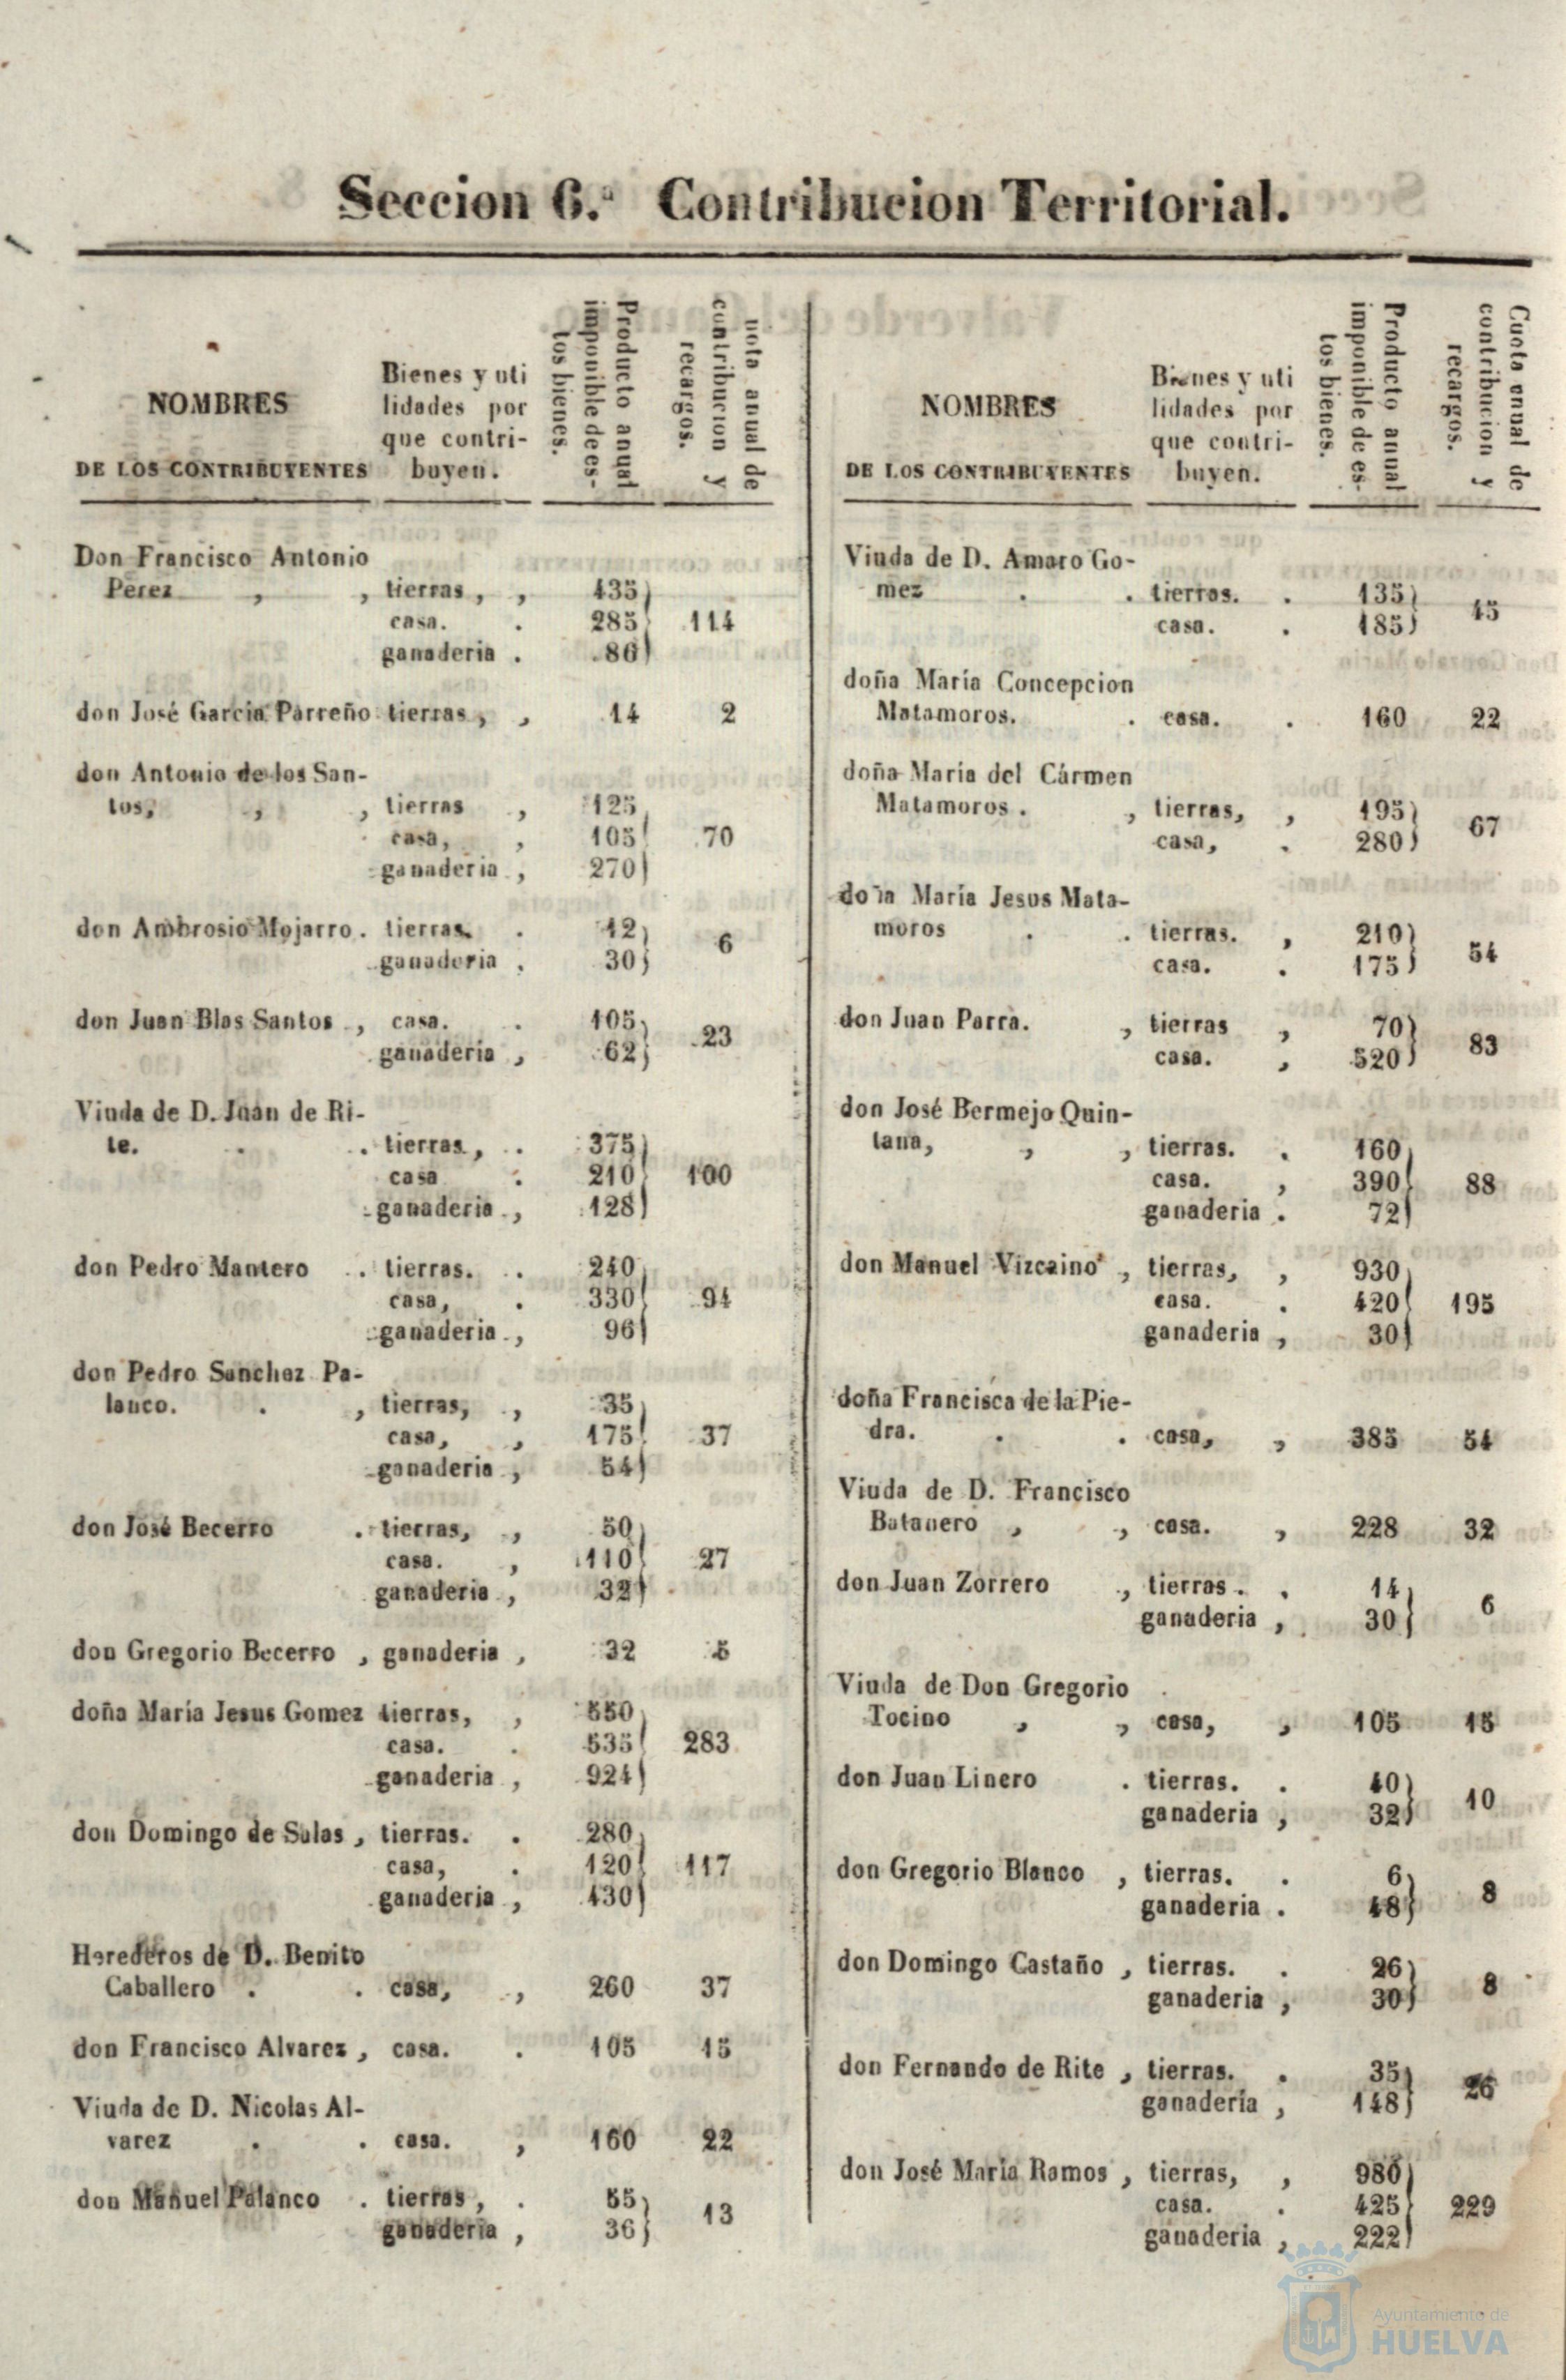 Seccion 6.ª Contribucion Territorial.
NOMBRES
DE LOS CONTRIBUYENTES
Bienes y uti
lidades por
que contri-
buyen.
Producto anual
imponible de es-
tos bienes.
uota anual de
contribucion y
recargos.
Don Francisco Antonio
Perez , , tierras , , 435
casa. . 285 114
ganaderia . 86
don José Garcia Parreño tierras , , 14 2
don Antonio de los San-
tos, , , tierras , 125
casa, , 105 70
ganaderia , 270
don Ambrosio Mojarro . tierras . 12 6
ganaderia , 30
don Juan Blas Santos , casa. . 105 23
ganaderia , 62
Viuda de D. Juan de Ri-
te. . . tierras , . 375
casa . 210 100
ganaderia , 128
don Pedro Mantero . tierras. . 240
casa, . 330 94
ganaderia , 96
don Pedro Sanchez Pa-
lanco. . , tierras, , 35
casa, , 175 37
ganaderia , 54
don José Becerro . tierras, , 50
casa. , 110 27
ganaderia , 32
don Gregorio Becerro , ganaderia , 32 5
doña Maria Jesus Gomez tierras, , 550
casa. . 535 283
ganaderia , 924
don Domingo de Salas , tierras. . 280
casa, . 120 117
ganaderia , 430
Herederos de D. Benito
Caballero . . casa, , 260 37
don Francisco Alvarez , casa. . 105 15
Viuda de D. Nicolas Al-
varez . . casa. , 160 22
don Manuel Palanco . tierras , . 55 13
ganaderia , 36
NOMBRES
DE LOS CONTRIBUYENTES
Bienes y uti
lidades por
que contri-
buyen.
Producto anual
imponible de es-
tos bienes.
Cuota anual de
contribucion y
recargos.
Viuda de D. Amaro Go-
mez . . tierras. . 135 45
casa. . 185
doña Maria Concepcion
Matamoros. . casa. . 160 22
doña Maria del Cármen
Matamoros . , tierras, , 195 67
casa, . 280
doña Maria Jesus Mata-
moros . . tierras. , 210 54
casa. . 175
don Juan Parra. , tierras , 70 83
casa. , 520
don José Bermejo Quin-
tana, , , tierras. . 160
casa. , 390 88
ganaderia . 72
don Manuel Vizcaino , tierras, , 930
casa. . 420 195
ganaderia , 30
doña Francisca de la Pie-
dra. . . casa, , 385 54
Viuda de D. Francisco
Batanero , , casa. , 228 32
don Juan Zorrero , tierras . . 14 6
ganaderia , 30
Viuda de Don Gregorio
Tocino , , casa, , 105 15
don Juan Linero . tierras. . 40 10
ganaderia , 32
don Gregorio Blanco , tierras. . 6 8
ganaderia . 48
don Domingo Castaño , tierras. . 26 8
ganaderia , 30
don Fernando de Rite , tierras. . 35 26
ganaderia , 148
don José Maria Ramos , tierras, , 986
casa. . 425 229
ganaderia , 222
Ayuntamiento de
HUELVA